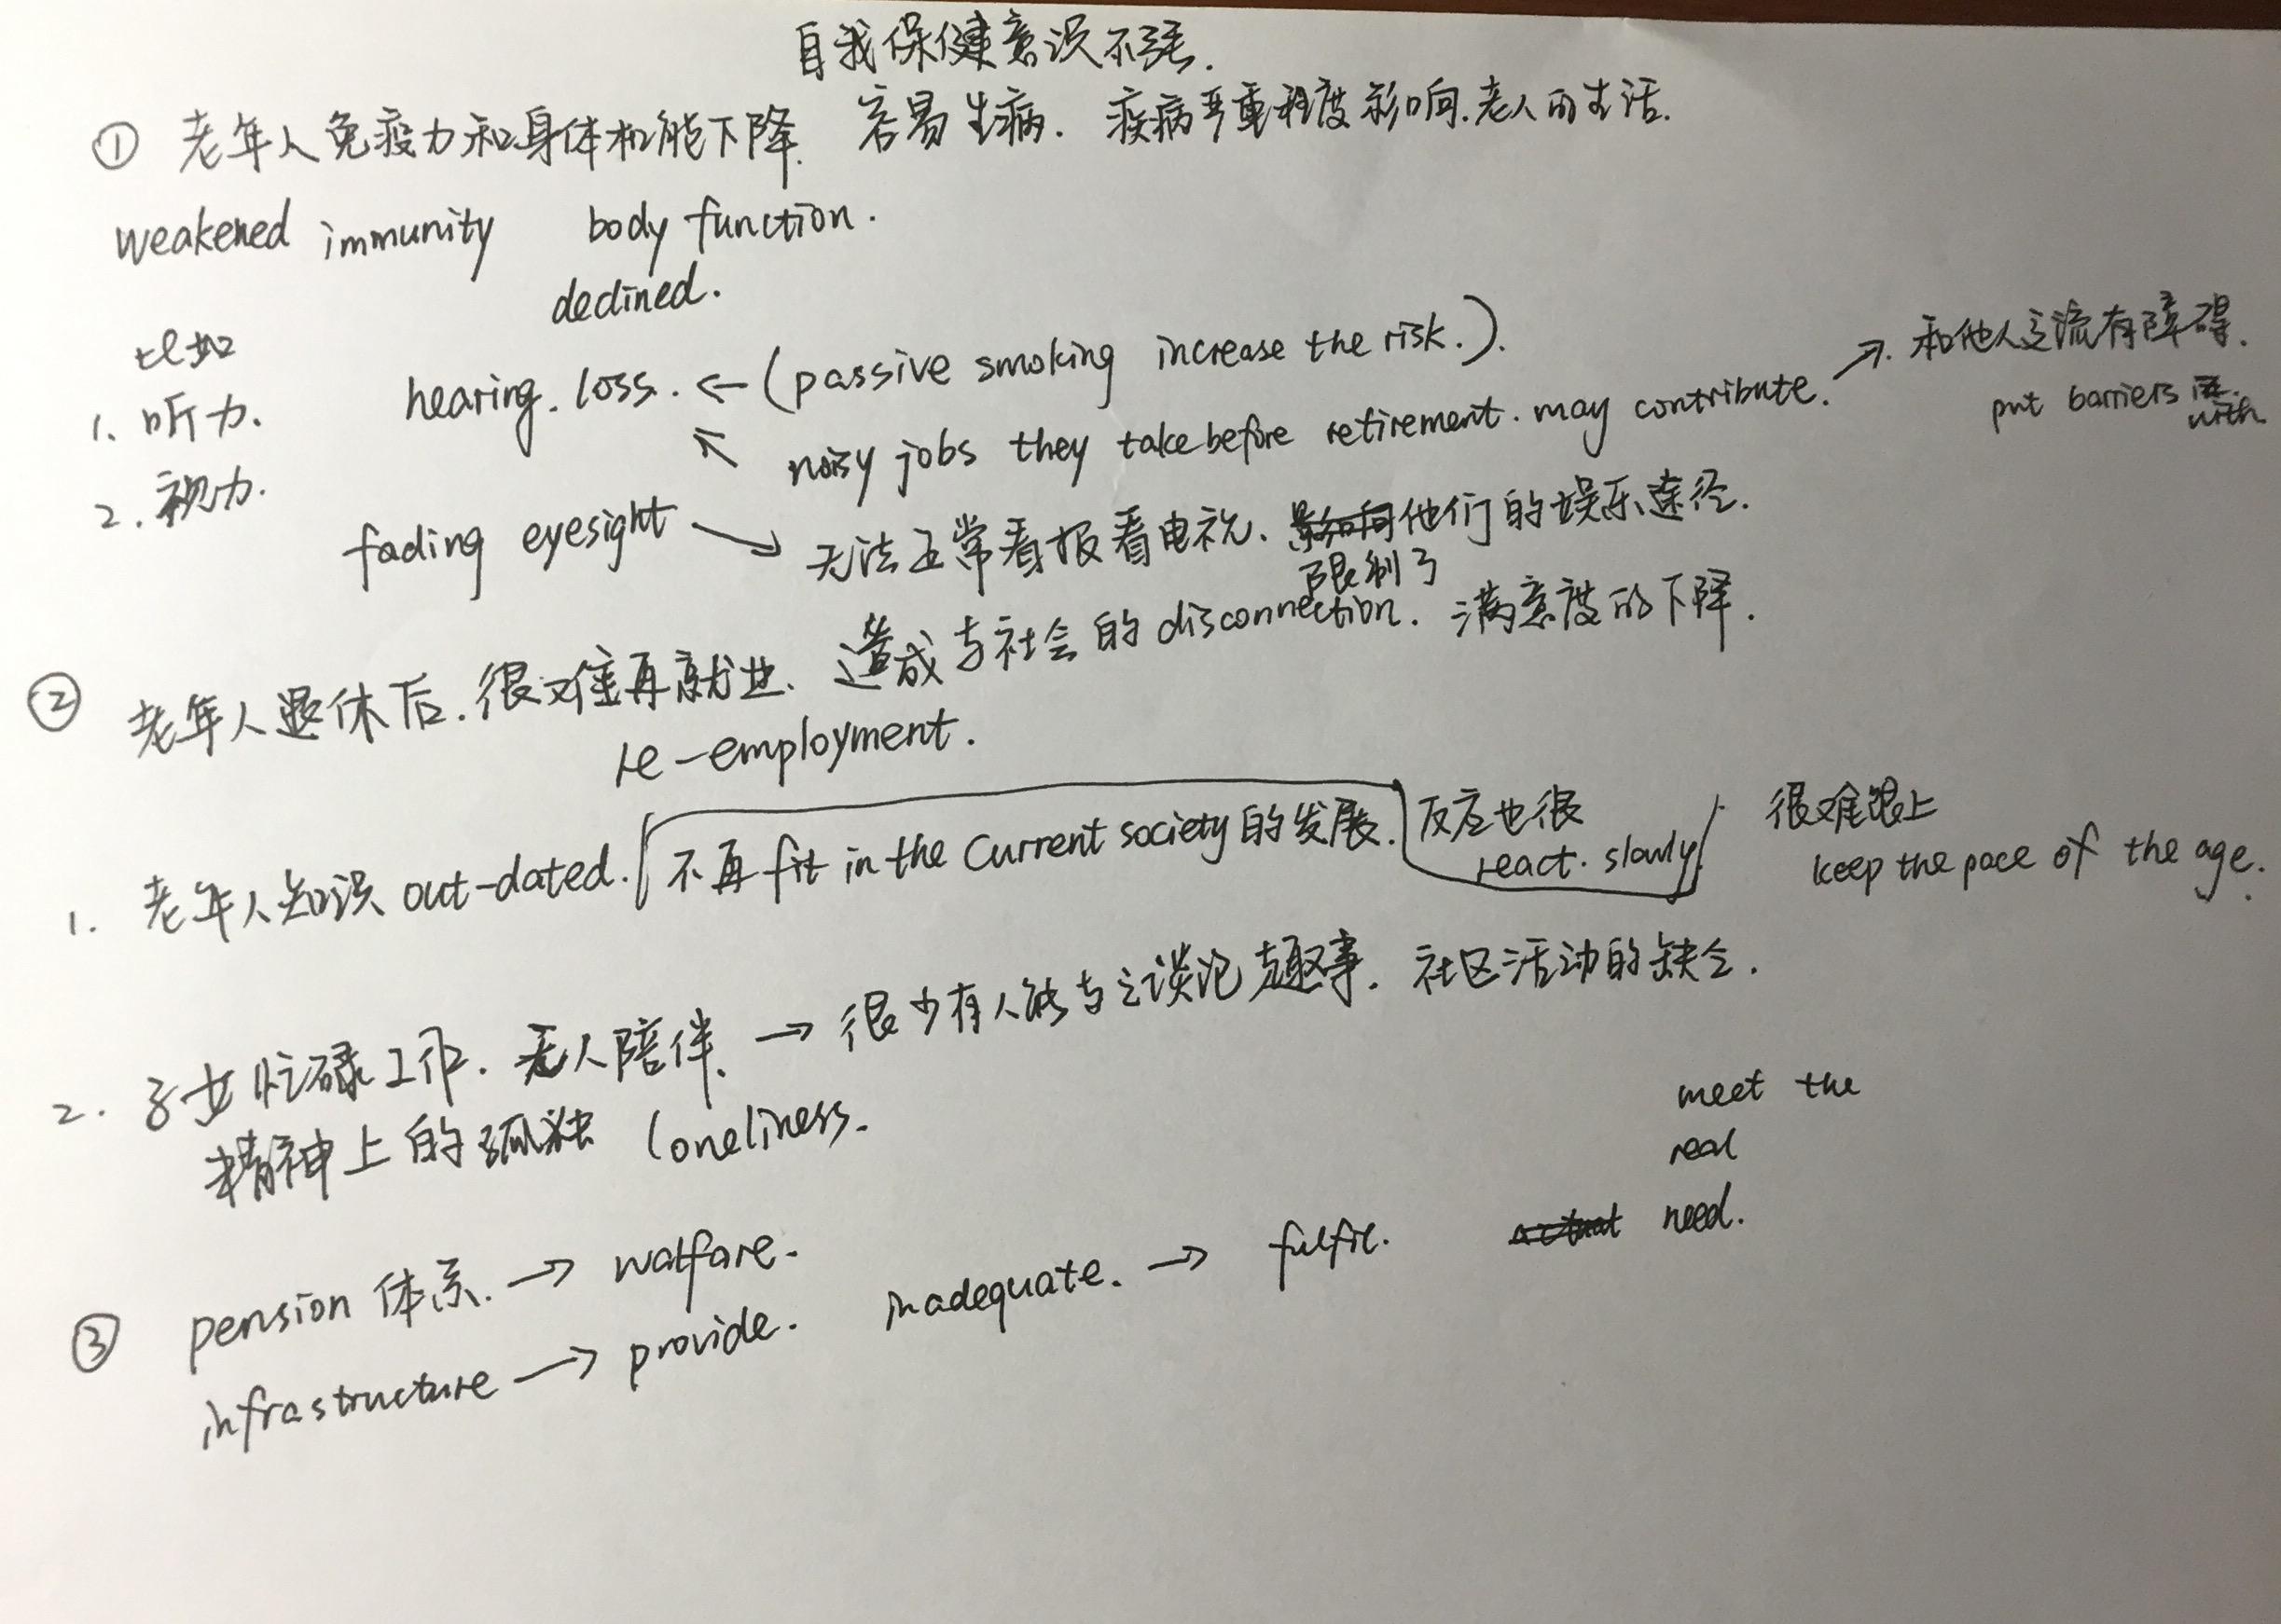 自我保健意识不强.
① 老年人免疫力和身体机能下降. 容易生病. 疾病严重程度影响老人的生活.
weakened immunity body function.
declined.
比如
1. 听力. hearing loss. ← (passive smoking increase the risk.).
↖ noisy jobs they take before retirement. may contribute. ↗. 和他人交流有障碍.
put barriers with
2. 视力.
fading eyesight → 无法正常看报看电视、影响他们的娱乐途径.
限制了
② 老年人退休后. 很难再就业. 造成与社会的 disconnection. 满意度的下降.
re-employment.
1. 老年人知识 out-dated. 不再 fit in the current society 的发展. 反应也很 很难跟上
react. slowly keep the pace of the age.
2. 子女忙碌工作. 无人陪伴. → 很少有人能与之谈论趣事. 社区活动的缺乏.
精神上的孤独 loneliness.
meet the
real
③ pension 体系. → walfare. inadequate. → fulfil. actual need.
infrastructure → provide.